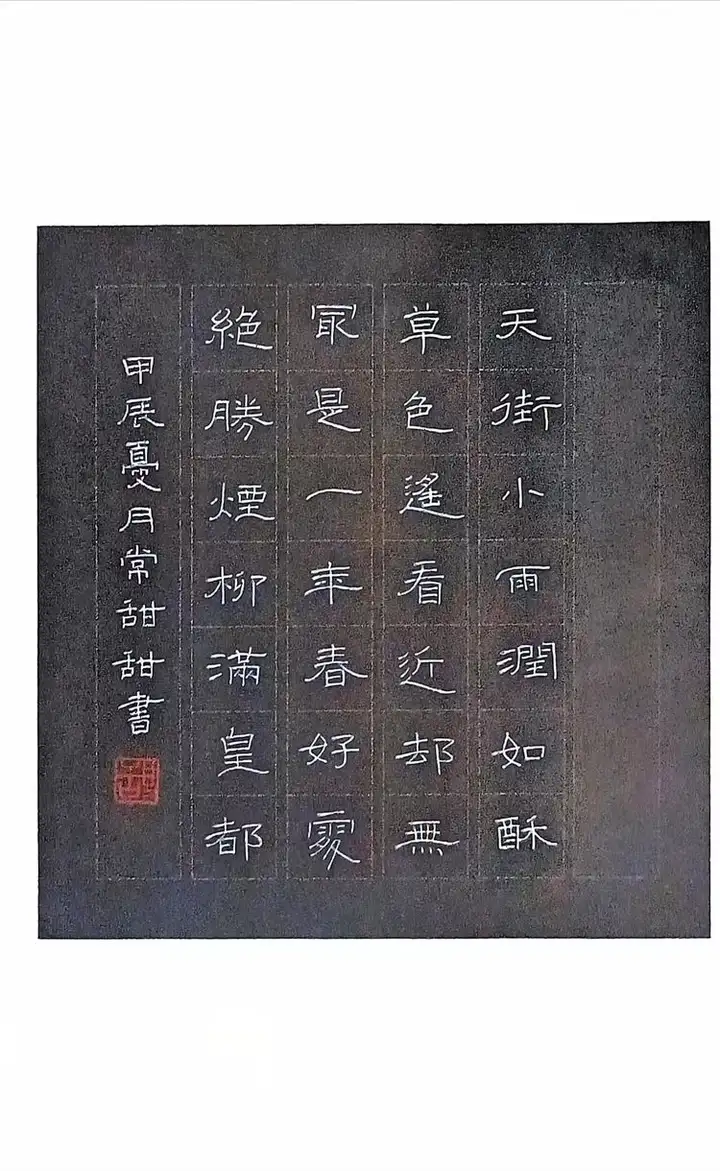 天街小雨潤如酥
草色遙看近却無
冣是一年春好處
絶勝煙柳滿皇都
甲辰夏月常甜甜書